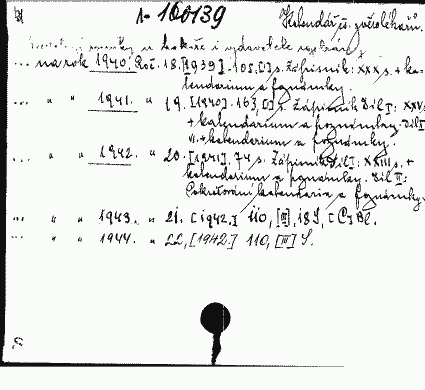 1-160139 Kalendář čs. zvěrolékařů.
u tiskaře i vydavatele
... na rok 1940. Roč. 18. [1939]. 105, [I] s. Zápisník: XXX s. + ka-
lendarium a poznámky.
... " " 1941. " 19. [1940]. 163, [I] s. Zápisník Díl I: XXV s.
+ kalendarium a poznámky. Díl
+ kalendarium a poznámky.
... " " 1942. " 20. [1941]. 74 s. Zápisník Díl I: XXIII s. +
kalendarium a poznámky. Díl II:
Pokračování kalendaria a poznámky.
... " " 1943. " 21. [1942.] 110, [II], 18 S,
... " " 1944. " 22, [1942.] 110, [III] S.